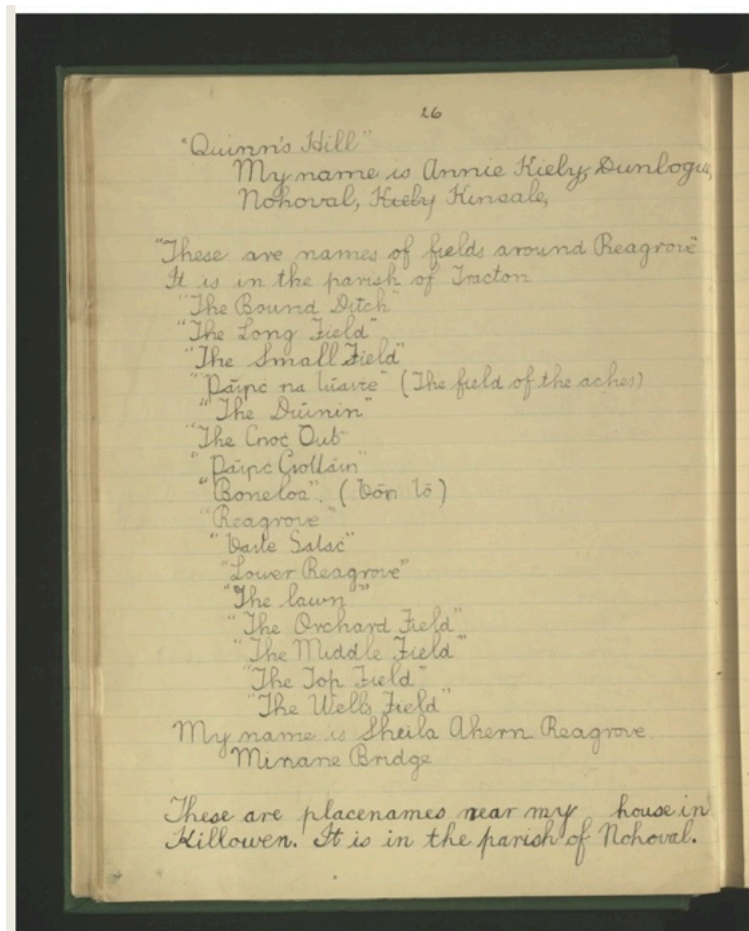 26
"Quinn's Hill"
My name is Annie Kiely, Dunlogue,
Nohoval, Kiely Kinsale,
"These are names of fields around Reagrove"
It is in the parish of Tracton
"The Bound Ditch"
"The Long Field"
"The Small Field"
"Páirc na" (The field of the aches)
"The Dúinín"
"The Cnoc Dub"
"Páirc"
"Boneloa". (Bón ló)
"Reagrove"
"Baile Salac"
"Lower Reagrove"
"The lawn"
"The Orchard Field"
"The Middle Field"
"The Top Field"
"The Wells Field"
My name is Sheila Ahern Reagrove.
Minane Bridge
These are placenames near my house in
Killowen. It is in the parish of Nohoval.